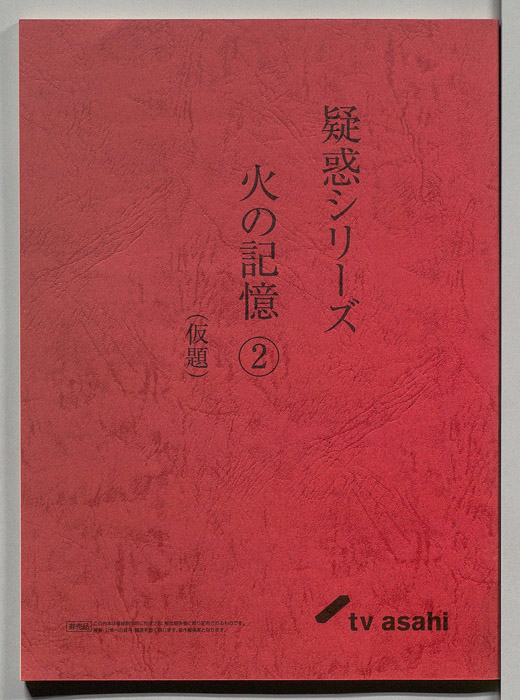 疑惑シリーズ
火の記憶②
（仮題）
非売品
tv asahi